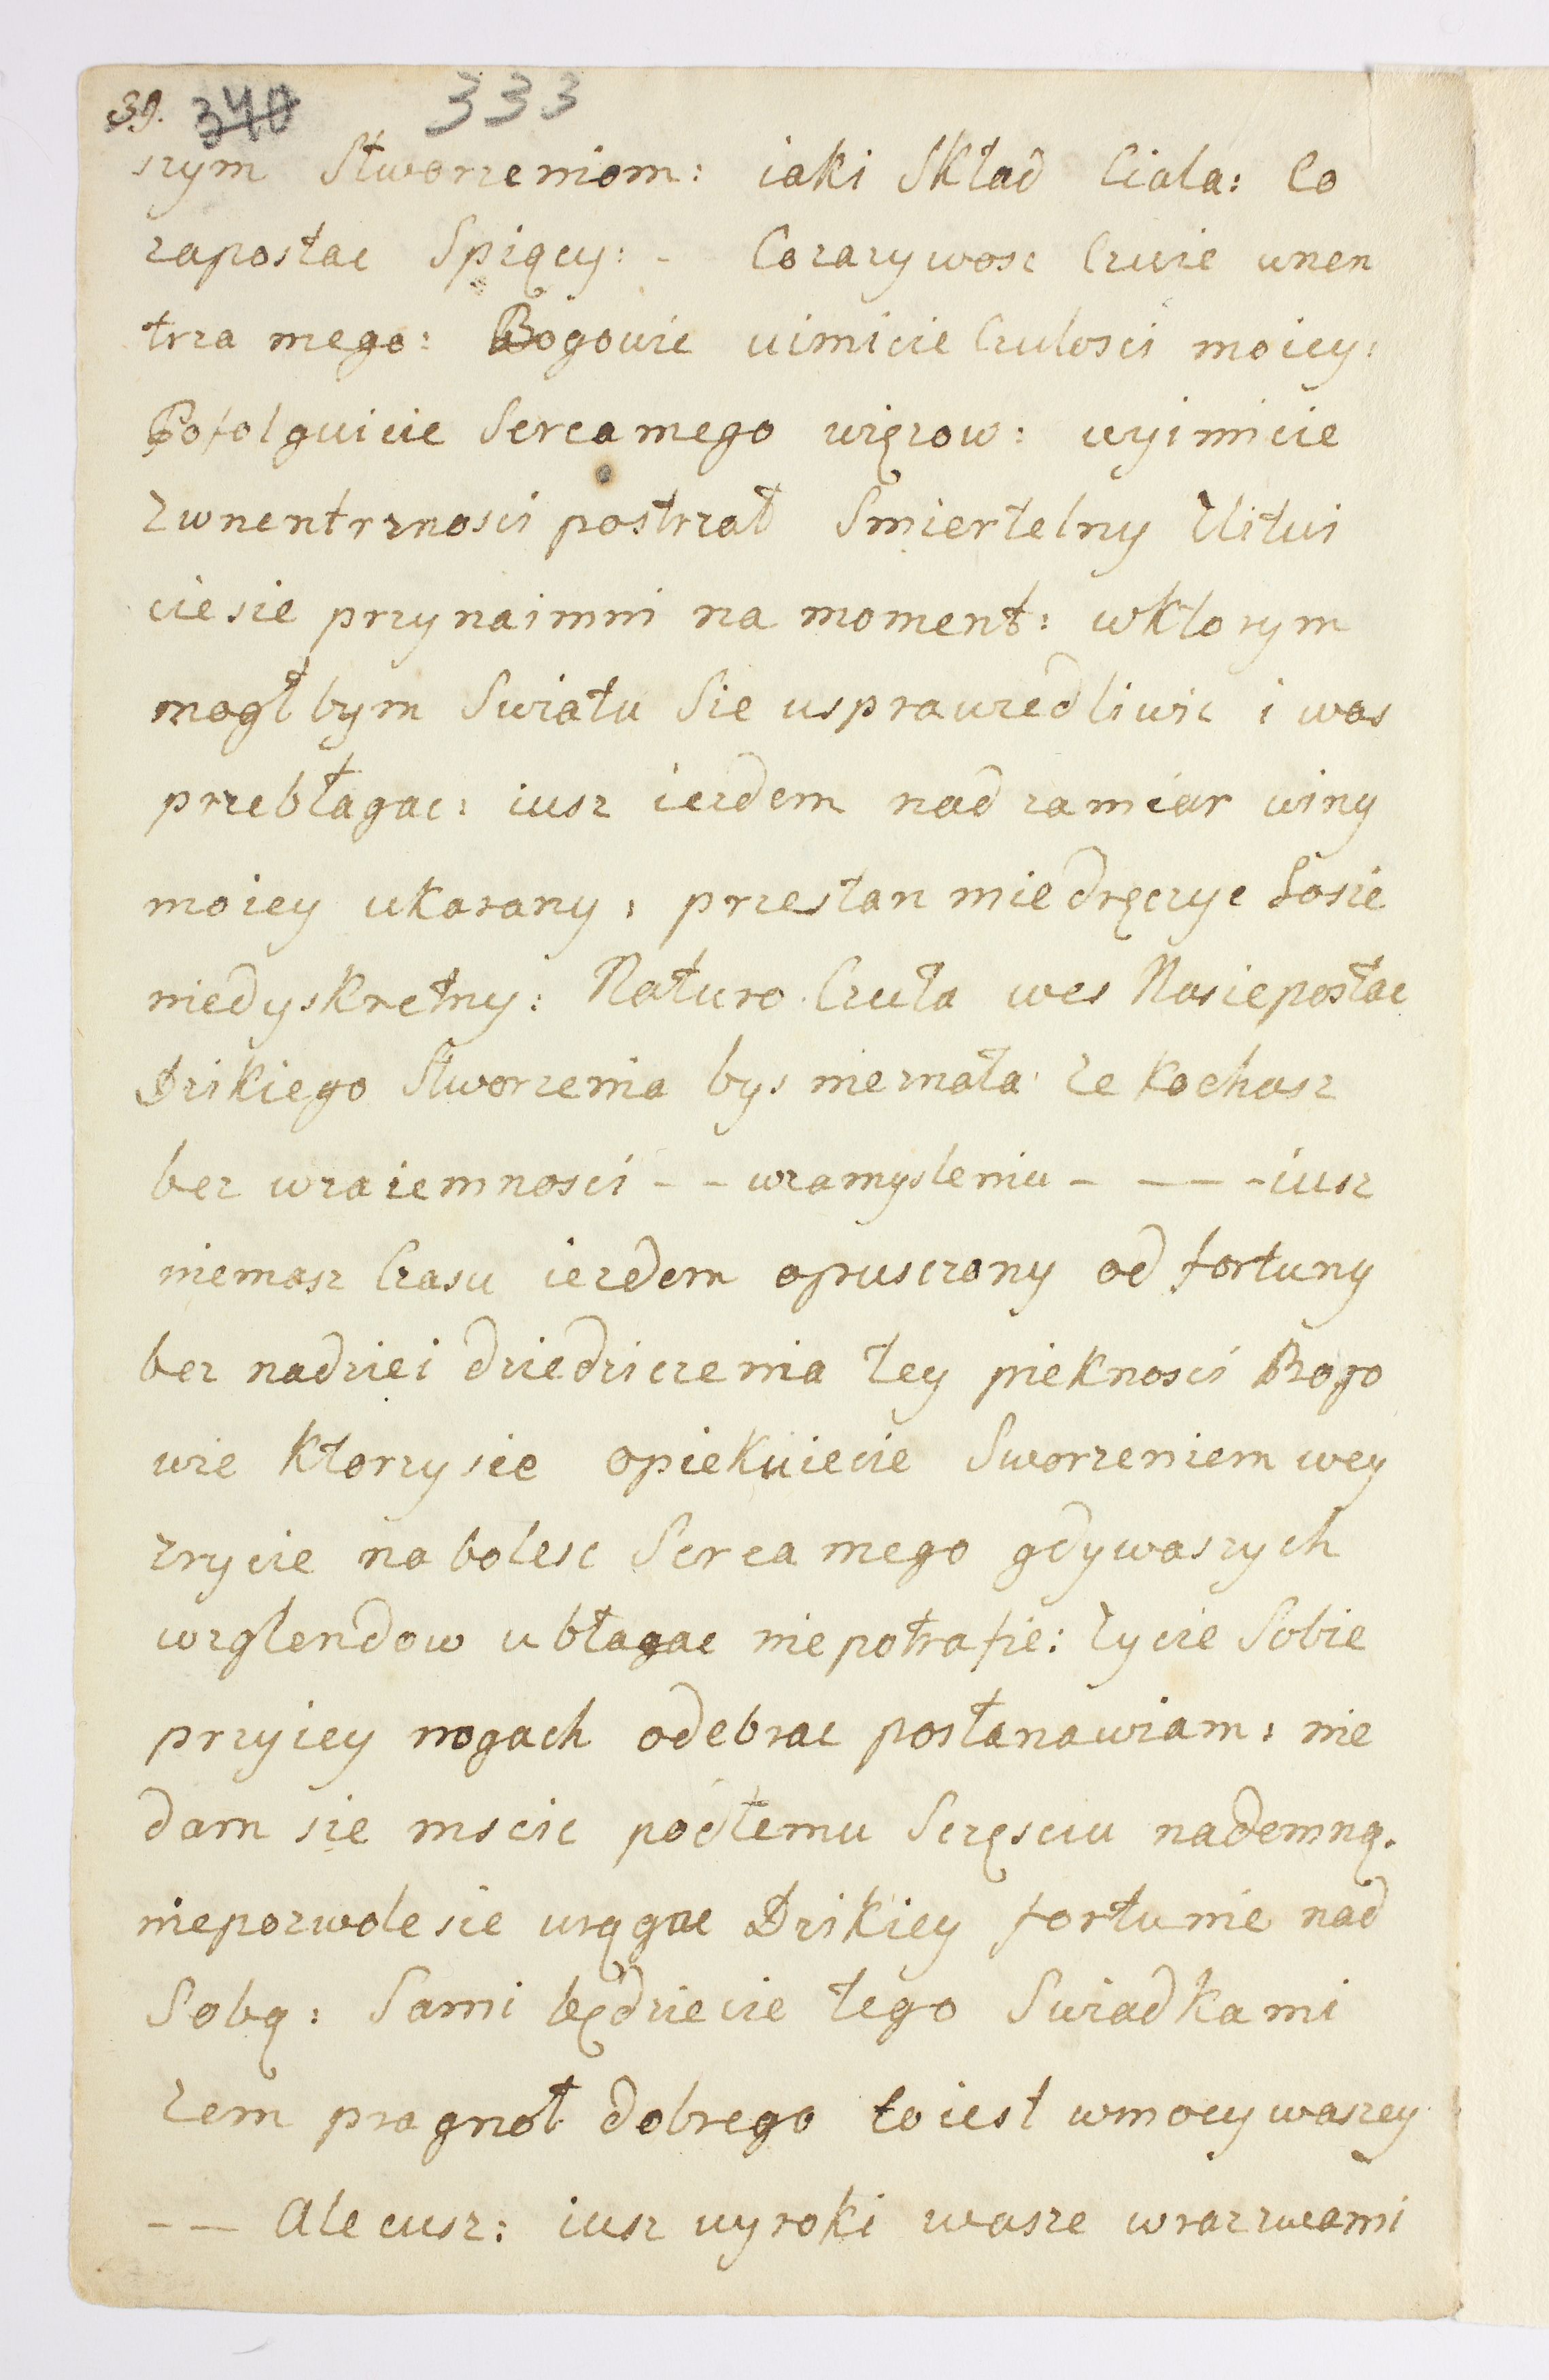 39. 340 333
szym Stworzeniom: iaki Skład Ciala: Co
zapostac Spiący: - Cozazywosc Czuie wnen
trza mego: Bogowie uimicie Czulosci moiey:
Pofolguicie Serca mego więzow: wyimicie
zwnentrznosci postrzał Smiertelny Ulitui
ciesie przynaimni na moment: wktorym
mogł bym Swiatu Sie usprawiedliwic i was
przebłagac: iusz iezdem nad zamiar winy
moiey ukarany: przestan mie dręczyc Losie
niedyskretny: Naturo Czuła wes Nasiepostac
Dzikiego Stworzenia bys nieznała ze kochasz
bez wzaiemnosci - - wzamysleniu - - - - iusz
niemasz Czasu iezdem opusczony od fortuny
bez nadziei dziedziczenia tey pieknosci Bogo
wie ktorzy sie opiekuiecie Sworzeniem wey
zrycie na bolesc Serca mego gdywaszych
wzglendow u błagac niepotrafie: zycie Sobie
przyiey nogach odebrac postanawiam: nie
dam sie mscic podłemu Sczęsciu nademną.
niepozwole sie urągac Dzikiey fortunie nad
Sobą: Sami będziecie tego Swiadkami
zem pragnoł dobrego to iest wmocy waszey
- - Ale cusz: iusz wyroki wasze wrazzwami